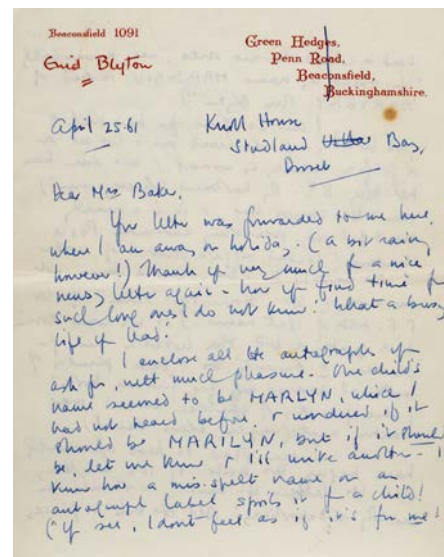 Beaconsfield 1091
Enid Blyton
Green Hedges,
Penn Road,
Beaconsfield,
Buckinghamshire.
April 25.61
Knoll House
Studland Bay,
Dorset
Dear Mrs Baker,
Your letter was forwarded to me here,
where I am away on holiday. (A bit rainy,
however!) Thank you very much for a nice
newsy letter again - how you find time for
such long ones I do not know! What a busy
life you lead!
I enclose all the autographs you
ask for, with much pleasure. One child's
name seemed to be MARLYN, which I
had not heard before, & wondered if it
should be MARILYN, but if it should
be, let me know & I'll write another - I
know how a mis-spelt name on an
autograph label spoils it for a child!
("You see, I don't feel as if it's for me!